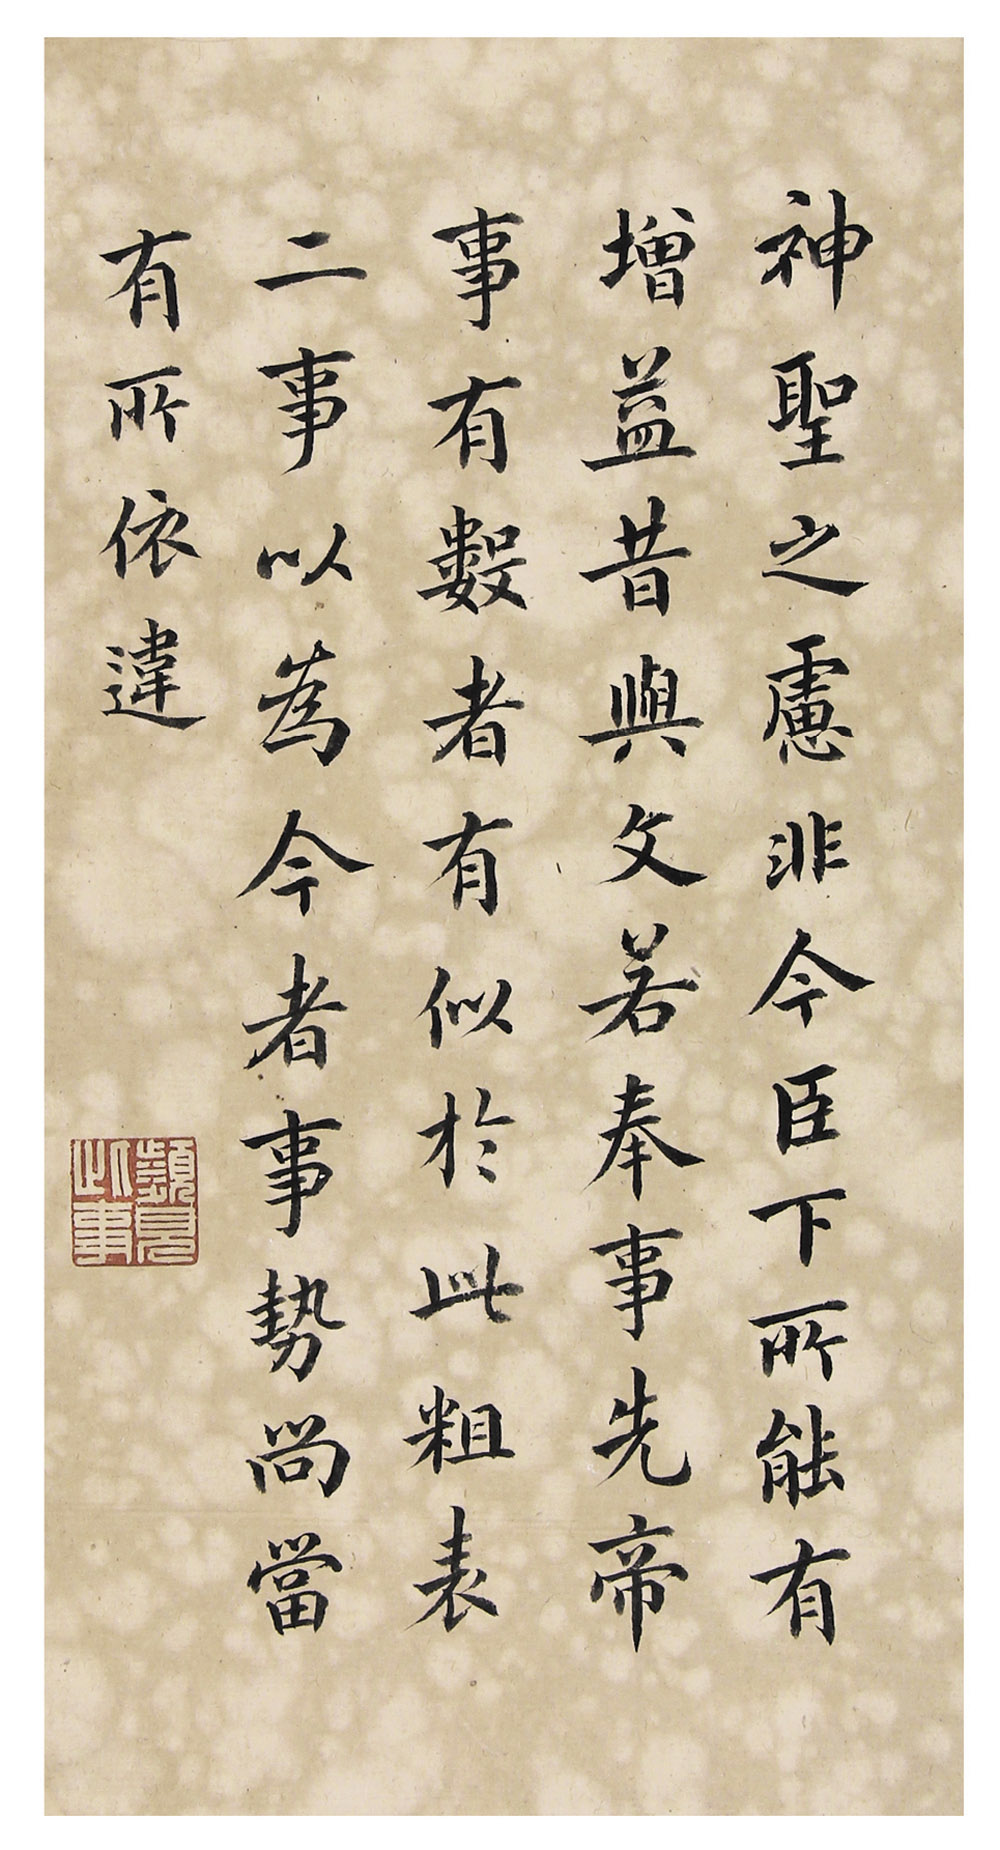 神聖之慮非今臣下所能有
增益昔與文若奉事先帝
事有數者有似於此粗表
二事以為今者事勢尚當
有所依違